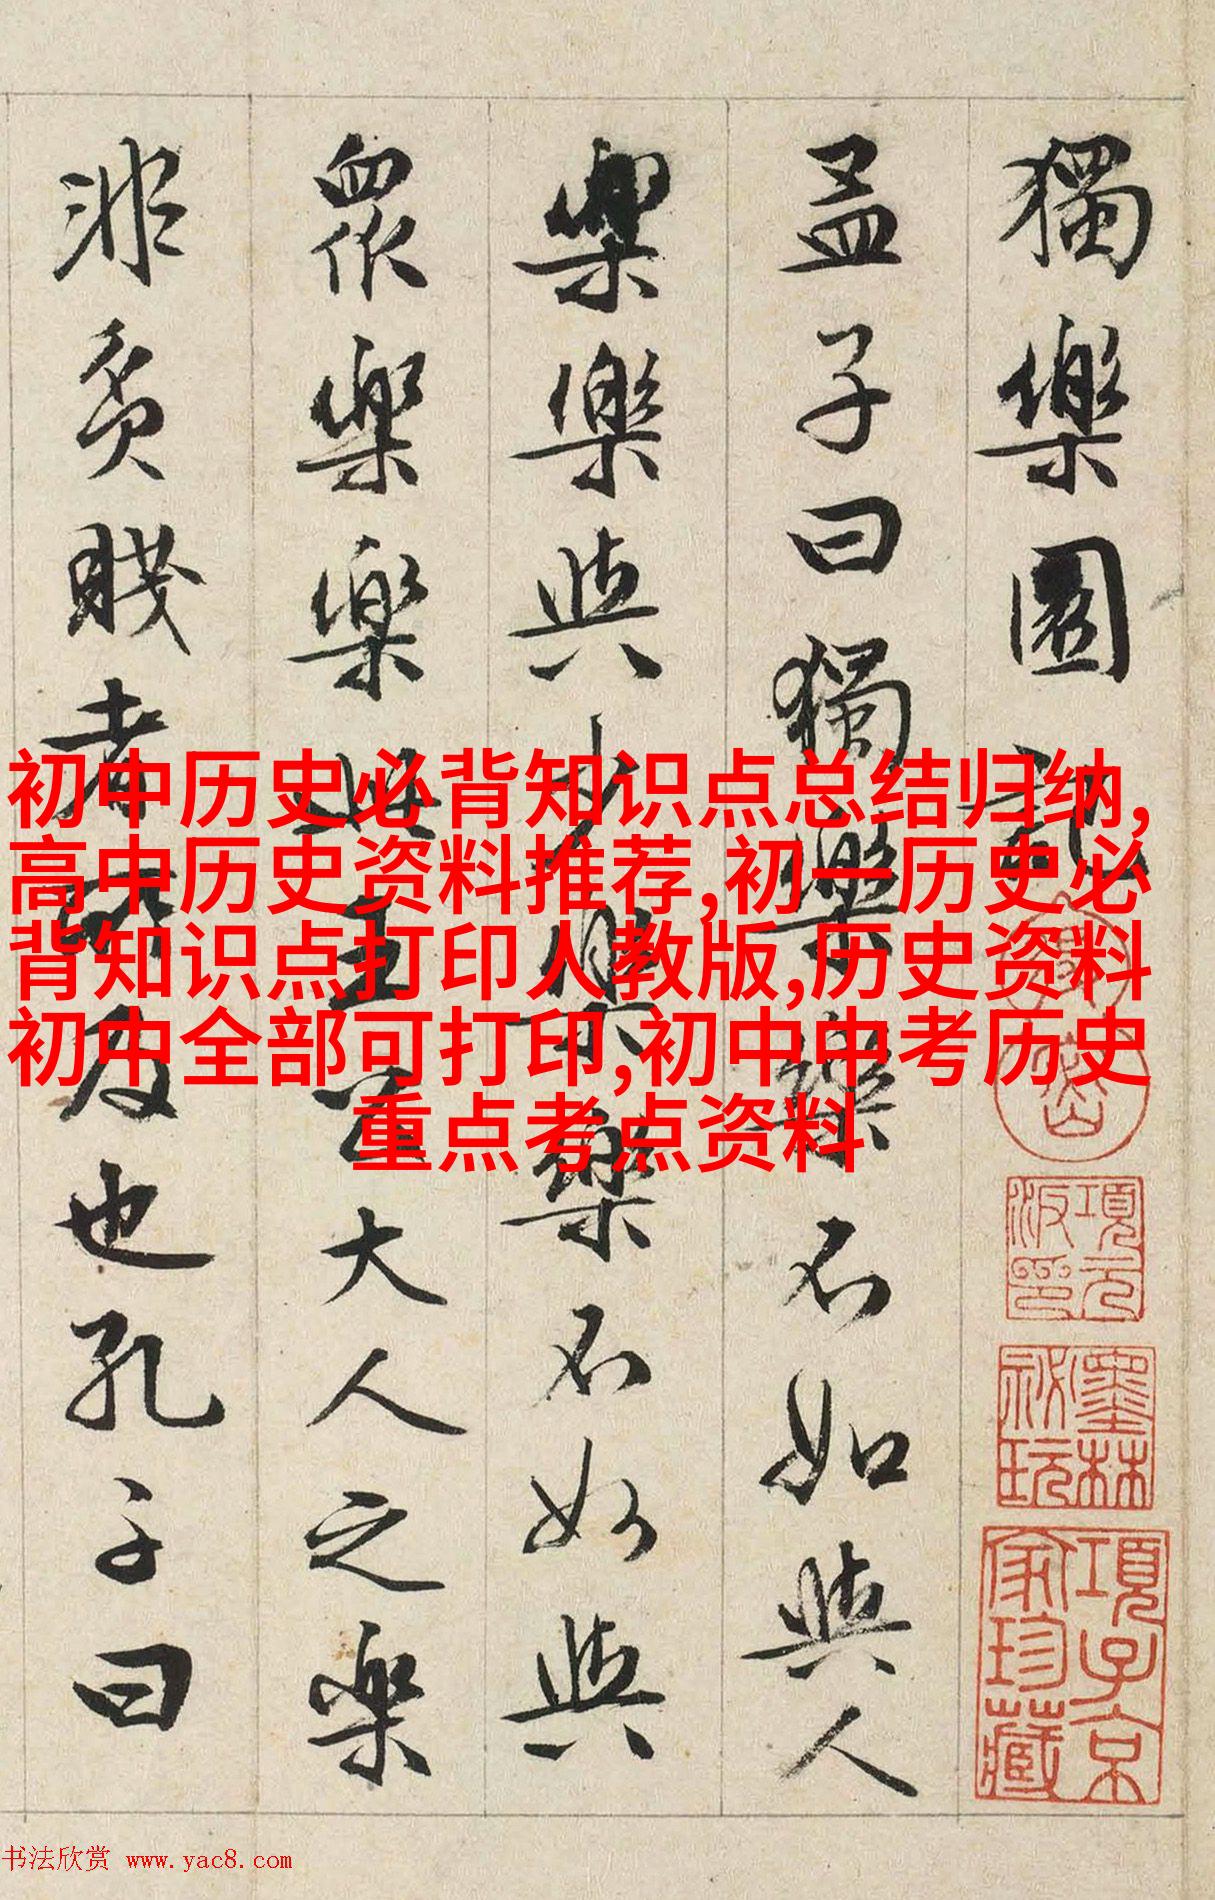 獨樂園記
孟子曰獨樂樂不如與人
樂樂與少樂樂不如與
眾樂樂此王公大人之樂
非貧賤者所及也孔子曰
初中历史必背知识点总结归纳,
高中历史资料推荐,初一历史必
背知识点打印人教版,历史资料
初中全部可打印,初中中考历史
重点考点资料
項元
汴印
墨林
秘玩
項子京
家珍藏
书法欣赏 www.yac8.com